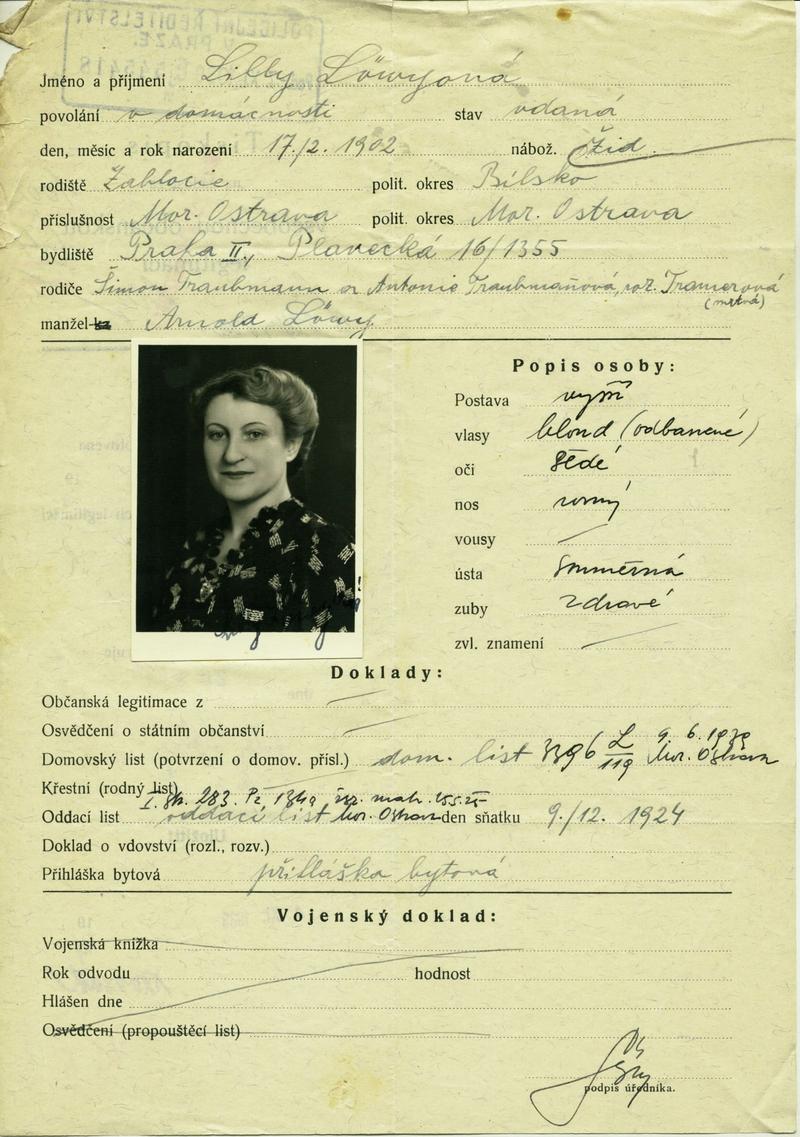 POLICEJNÍ ŘEDITELSTVÍ
PRAZE.
Jméno a příjmení Lilly Löwyová
povolání v domácnosti stav vdaná
den, měsíc a rok narození 17./2. 1902 nábož. Žid.
rodiště Zablocie polit. okres Bílsko
příslušnost Mor. Ostrava polit. okres Mor. Ostrava
bydliště Praha II., Plavecká 16/1355
rodiče Šimon Traubmann a Antonie Traubmanová, roz. Tramerová
(mrtvá)
manžel-ka Arnold Löwy
Popis osoby:
Postava vyšší
vlasy blond (odbarvené)
oči šedé
nos rovný
vousy
ústa souměrná
zuby zdravé
zvl. znamení
Doklady:
Občanská legitimace z
Osvědčení o státním občanství
Domovský list (potvrzení o domov. přísl.) dom. list 3396 L/119 9. 6. 1939 Mor. Ostrava
Křestní (rodný list)
Oddací list oddací list Mor. Ostrava den sňatku 9./12. 1924
Doklad o vdovství (rozl., rozv.)
Přihláška bytová přihláška bytová
Vojenský doklad:
Vojenská knížka
Rok odvodu hodnost
Hlášen dne
Osvědčení (propouštěcí list)
podpis úředníka.